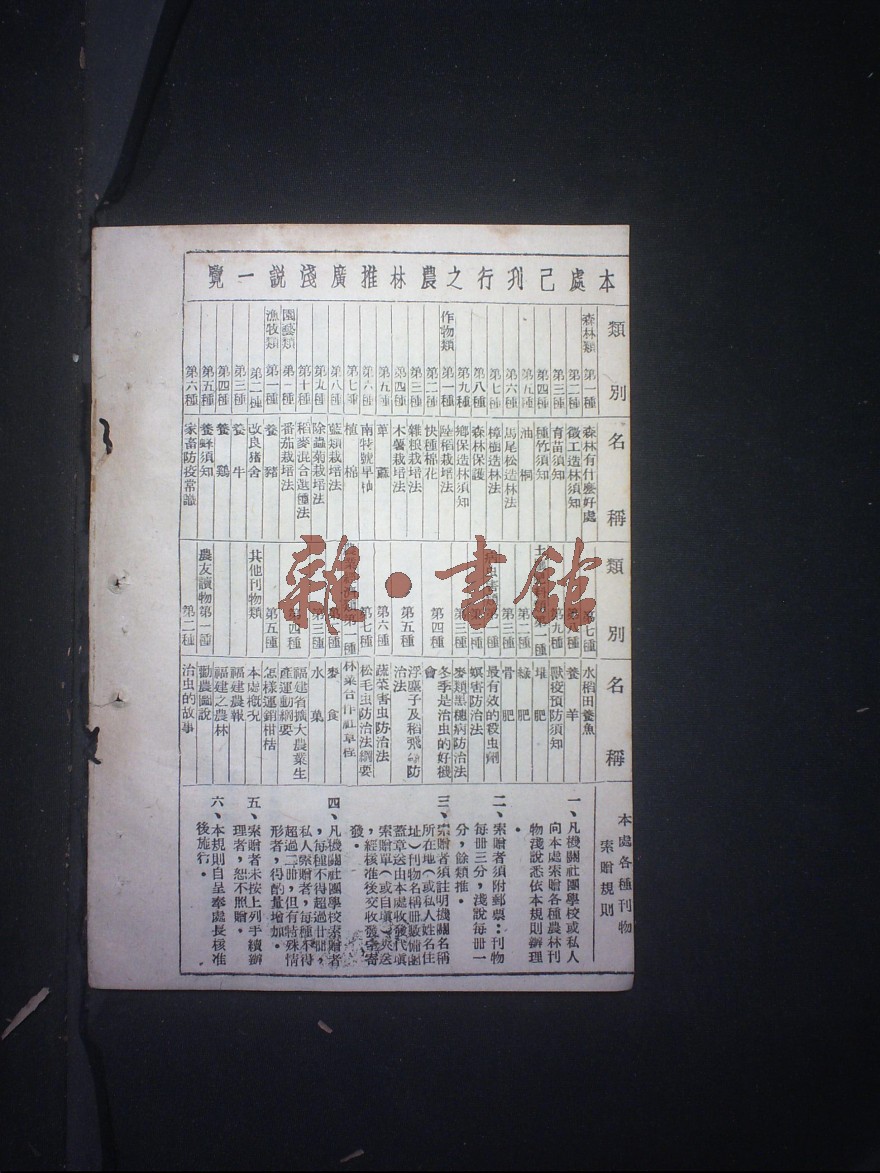 本處己刋行之農林推廣淺説一覽
類別
名稱
類別
名稱
森林類 第一種 森林有什麼好處
第二種 徵工造林須知
第三種 育苗須知
第四種 種竹須知
第五種 油桐
第六種 馬尾松造林法
第七種 樟樹造林法
第八種 森林保護
第九種 鄉保造林須知
作物類 第一種 陸稻栽培法
第二種 快種棉花
第三種 雜粮栽培法
第四種 木薯栽培法
第五種 蓖蔴
第六種 南特號早秈
第七種 植棉
第八種 藍類栽培法
第九種 除蟲菊栽培法
第十種 稻麥混合選種法
園藝類 第一種 番茄栽培法
漁牧類 第一種 養豬
第二種 改良猪舍
第三種 養牛
第四種 養鷄
第五種 養蜂須知
第六種 家畜防疫常識
第七種 水稻田養魚
第八種 養羊
第九種 獸疫預防須知
第一種 堆肥
第二種 綠肥
第三種 骨肥
第一種 最有效的殺虫劑
第二種 螟害防治法
第三種 麥類黑穗病防治法
第四種 冬季是治虫的好機會
第五種 浮塵子及稻飛蝨防治法
第六種 蔬菜害虫防治法
第七種 松毛虫防治法綱要
第一種 林業合作社章程
第二種 麥食
第三種 水菓
第四種 福建省擴大農業生產運動綱要
第五種 怎樣運銷柑桔
其他刊物類 本處概况
福建農報
福建之農林
農友讀物 第一種 勸農圖説
第二種 治虫的故事
本處各種刊物
索贈規則
一、凡機關社團學校或私人
向本處索贈各種農林刊
物淺説悉依本規則辦理
。
二、索贈者須附郵票：刊物
每冊三分，淺説每冊一
分，餘類推。
三、索贈者須註明機關名稱
所在地（或私人姓名住
址）刊物名稱冊數備函
蓋章送由本處收發代填
索贈單（或自填）奐送
，經核准後交收發室寄
發。
四、凡機關社團學校索贈者
，每種不得超過廿冊，
私人索贈者，每種不得
超過二冊，但有特殊情
形者，得酌量增加。
五、索贈者未按上列手續辦
理者，恕不照贈。
六、本規則自呈奉處長核准
後施行。
雜·書館